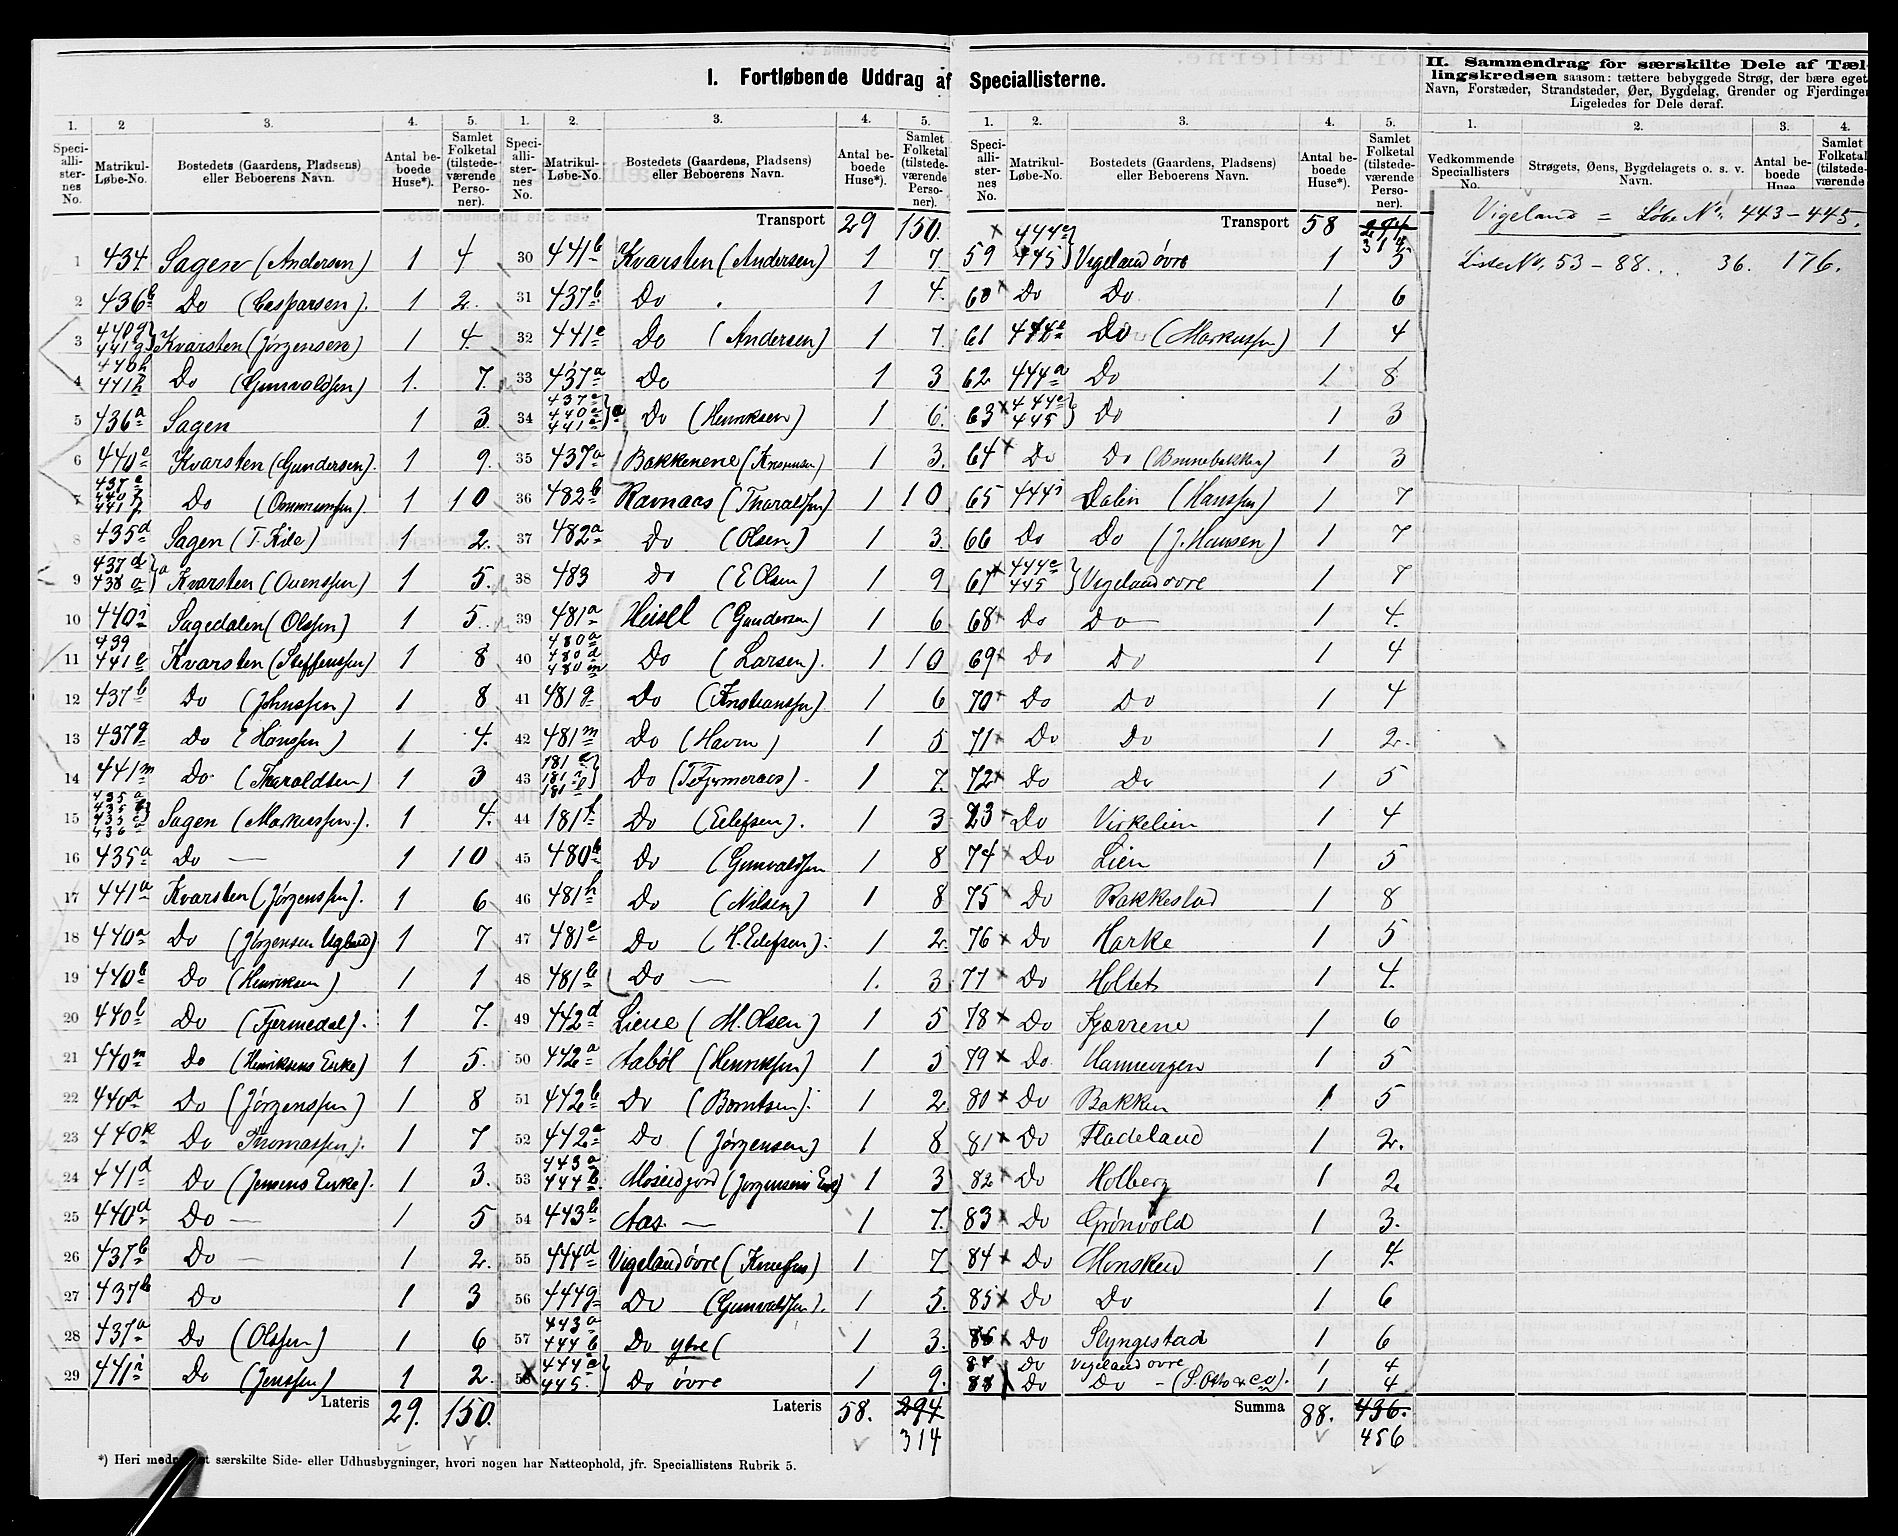 I. Fortløbende Uddrag af Speciallisterne.
II. Sammendrag for særskilte Dele af Tæl-
lingskredsen saasom: tættere bebyggede Strøg, der bære eget
Navn, Forstæder, Strandsteder, Øer, Bygdelag, Grender og Fjerdinger
Ligeledes for Dele deraf.
1. Speciallisternes No. 2 Matrikul-Løbe-No. 3. Bostedets (Gaardens, Pladsens) eller Beboerens Navn. 4. Antal beboede Huse*). 5. Samlet Folketal (tilstedeværende Personer).
1 434 Sagen (Andersen) 1 4
2 436b Do (Casparsen). 1 2.
3 440g 441g Kvarsten (Jørgensen) 1 4.
4 440h 441h Do (Gunvaldsen) 1. 7.
5 436a Sagen 1 3
6 440e Kvarsten (Gundersen). 1 9.
7 437e 440f 441f Do (Ommunsen). 1 10
8 435d Sagen (T. Kile) 1 2.
9 437d 438a Kvarsten (Ouenssen) 1 5.
10 440i Sagedalen (Olssen) 1 5.
11 439 441e Kvarsten (Steffenssen) 1 8
12 437b Do (Johnssen) 1 8
13 437g Do (Hanssen) 1 4.
14 441m Do. (Tharaldsen) 1 3
15 435a 435b 435c 436a Sagen (Markussen). 1 4.
16 435a Do — 1 10
17 441a Kvarsten (Jørgenssen). 1 6
18 440a Do (Jørgensen Ugland) 1 7
19 440b Do (Henriksen) 1 1
20 440l Do (Fjermedal). 1 7.
21 440m Do (Henriksens Enke) 1 5.
22 440a Do (Jørgenssen) 1 8
23 440k Do Thomassen). 1 7
24 441d Do (Jensens Enke). 1 3.
25 440a Do — 1 5
26 437b Do — 1 2.
27 437b Do 1 3
28 437a Do (Olssen) 1 6
29 441i Do (Jenssen) 1 2.
Lateris 29. 150.
1. Speciallisternes No. 2. Matrikul-Løbe-No. 3. Bostedets (Gaardens, Pladsens) eller Beboerens Navn. 4. Antal beboede Huse*). 5. Samlet Folketal (tilstedeværende Personer).
Transport 29 150.
30 441b Kvarsten (Andersen) 1 7.
31 437b Do . 1 4.
32 441c Do (Andersen) 1 7.
33 437a Do 1 3
34 437c 440c 441c Do (Henriksen) 1 6.
35 437a Bakkenene 1 3.
36 482b Ravnaas (Tharaldsen) 1 10
37 482a Do (Olsen) 1 3.
38 483 Do (E Olsen) 1 9
39 481a Heisel (Gundersen) 1 6
40 480a 480d 480m Do (Larsen). 1 10
41 481g Do (Kristianssen) 1 6
42 481m Do (Havn) 1 5
43 181 181 181 Do 1 7.
44 181f Do (Eilefsen). 1 3
45 480b Do (Gunvaldsen 1 8
46 481h Do (Nilsen) 1 8
47 481e Do (H. Eilefsen). 1 2.
48 481b Do — 1. 3
49 442d Liene (M. Olsen) 1 5
50 442a Aabøl (Henrikssen) 1 5
51 442b Do (Berntsen). 1 2.
52 442a Do (Jørgensen) 1 8
53 443a 444b Moseidjord (Jørgensens Enke) 1 3
54 443b Aas. — 1 7.
55 444d Vigeland øvre (Knussen) 1 7
56 444g Do (Gunvaldsen). 1 5.
57 443a 444b Do ytre ( 1 3.
58 444e 445. Do øvre 1 9.
Lateris 58. 294
314
*) Heri medregnet særskilte Side- eller Udhusbygninger, hvori nogen har Natteophold, jfr. Speciallistens Rubrik 5.
1. Speciallisternes No. 2. Matrikul-Løbe-No. 3. Bostedets (Gaardens, Pladsens) eller Beboerens Navn. 4. Antal beboede Huse*). 5. Samlet Folketal (tilstedeværende Personer).
Transport 58 294
314
59 444e 445 Vigeland øvre 1 5
60 Do Do 1 6
61 444e Do (Markussen) 1 4
62 444a Do 1 8
63 444e 445 Do 1 3
64 Do Do (Bonnebakken) 1 3
65 444i Dalen (Hanssen) 1 7
66 Do Do (J. Hansen) 1 7
67 444e 445 Vigeland øvre 1 7
68 Do Do — 1 4.
69 Do Do 1 4
70 Do Do 1 4
71 Do Do 1 2.
72 Do Do 1 5
73 Do Virkelien 1 4
74 Do Lien 1 5
75 Do Bakkestad 1 8
76 Do Harke 1 5
77 Do Holtet 1 4.
78 Do Kjærrene 1 6
79 Do. 1 5
80 Do Bakken 1 5
81 Do Fladeland 1 2.
82 Do Holberg 1 2
83 Do Grønvold 1 3.
84 Do Monskud 1 4.
85 Do Do 1 6
86 Do Slyngestad 1 6
87 Do Vigeland øvre 1 4
88 Do Do — (S. Otto & Co). 1 4
Summa 88. 436.
456
1. Vedkommende Speciallisters No. 2. Strøgets, Øens, Bygdelagets o. s. v. Navn. 3. Antal beboede Huse 4. Samlet Folketal (tilstedeværende
Vigeland = Løbe No. 443 – 445.
Liste No. 53 – 88... 36. 176.